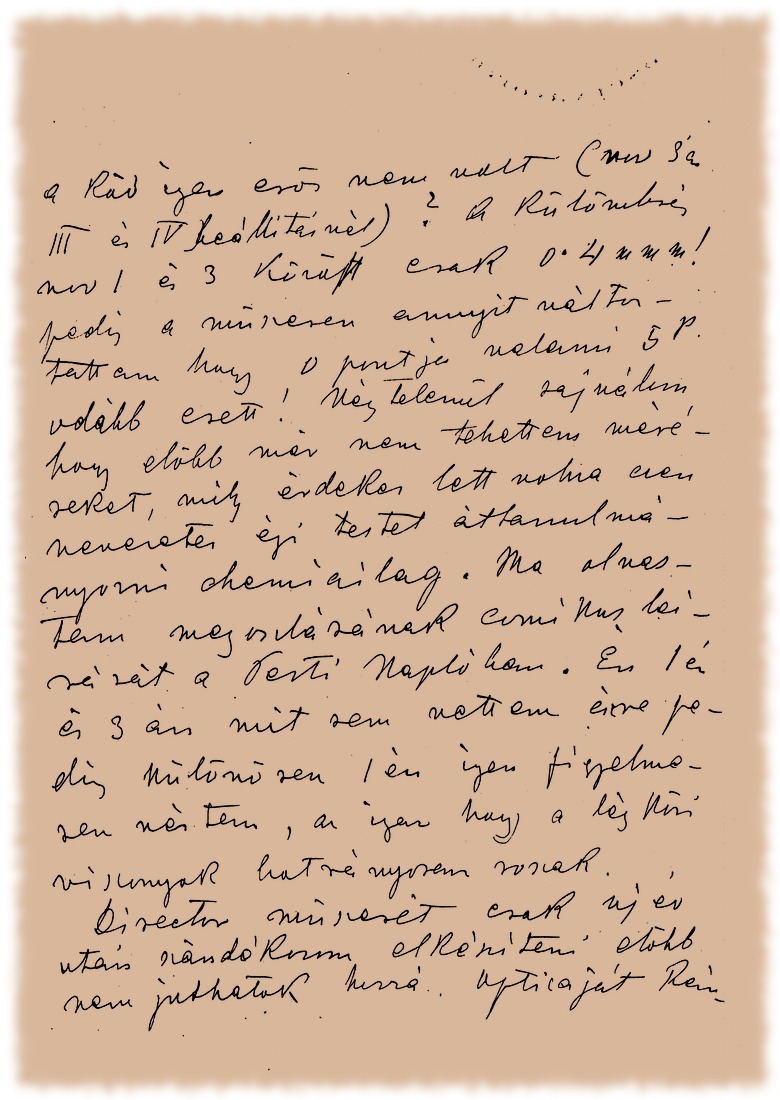 a Köd igen erős nem volt (nov 3án
III és IV beállításnál)? a Külömbség
nov 1 és 3 Között csak 0.4 mmm!
pedig a műszeren annyit változ-
tattam hogy 0 pontja valami 5 P.
odább esett! Végtelenűl sajnálom
hogy előbb már nem tehettem méré-
seket, mily érdekes lett volna ezen
nevezetes égi testet áttanulmá-
nyozni chemiailag. Ma olvas-
tam megoszlásának comikus leí-
rását a Pesti Naplóban. Én 1én
és 3án mit sem vettem észre pe-
dig Különösen 1én igen figyelme-
sen néztem, az igaz hogy a légköri
viszonyok hatványosan roszak.
Director műszerét csak új év
után szándékozom elkészíteni előbb
nem juthatok hozzá. Opticáját